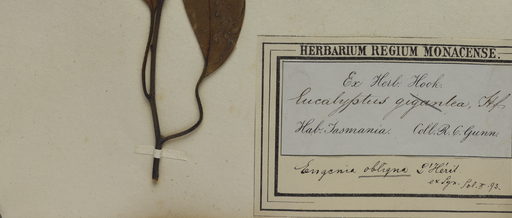 HERBARIUM REGIUM MONACENSE.
Ex Herb. Hook.
Eucalyptus gigantea, Hf.
Hab: Tasmania. Coll. R. C. Gunn.
Eugenia obliqua L'Hérit
ex Syn. Fol. II. 93.